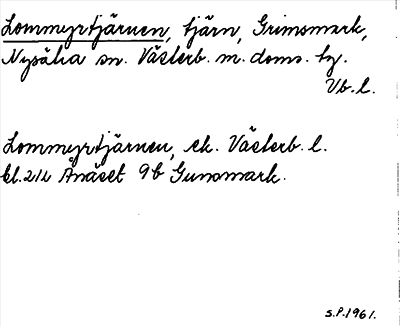 Lommyrtjärnen, tjärn, Grimsmark,
Nysätra sn. Västerb. m. doms. tg.
Vb. l.
Lommyrtjärnen, ek. Västerb. l.
bl. 21L Ånäset 9b Gumsmark.
S.P. 1961.